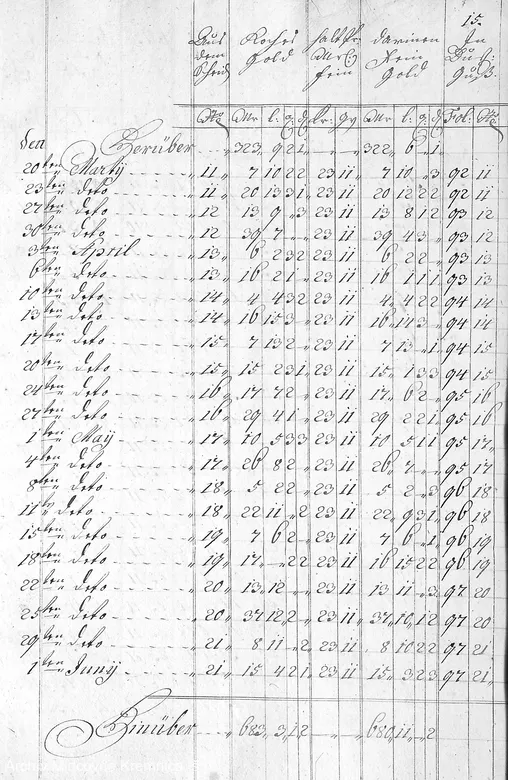 15.
Aus Roches halt Kr. darinnen In
dem Gold Mrc fein
Scheid fein Gold Guß.
No Mr l: q: d Kr: gr Mr l: q: d Fol: No
den Herüber 323, 9 2 1 „ „ 322„ 6 „ 1
20ten Martij 11 7 10 2 2 23 11 7 10 „ 3 92 11
23ten deto 11 20 13 3 1 23 11 20 12 2 2 92 11
27ten deto 12 13 9 „ 3 23 11 13 8 1 2 93 12
30ten deto 12 39 7 „ „ 23 11 39 4 3 „ 93 12
3ten April 13 6 2 3 2 23 11 6 2 2 „ 93 13
6ten deto 13 16 2 1 „ 23 11 16 1 1 1 93 13
10ten deto 14 4 4 3 2 23 11 4 4 2 2 94 14
13ten deto 14 16 15 3 „ 23 11 16 14 3 „ 94 14
17ten deto 15 7 13 2 „ 23 11 7 13 „ 1 94 15
20ten deto 15 15 2 3 1 23 11 15 1 3 3 94 15
24ten deto 16 17 7 2 „ 23 11 17 6 2 „ 95 16
27ten deto 16 29 4 1 „ 23 11 29 2 2 1 95 16
1ten Maij 17 10 5 3 3 23 11 10 5 1 1 95 17
4ten deto 17 26 8 2 „ 23 11 26 7 „ „ 95 17
8ten deto 18 5 2 2 „ 23 11 5 2 „ 3 96 18
11ten deto 18 22 11 „ 2 23 11 22 9 3 1 96 18
15ten deto 19 7 6 2 „ 23 11 7 6 „ 1 96 19
18ten deto 19 17 „ 2 2 23 11 16 15 2 2 96 19
22ten deto 20 13 12 „ „ 23 11 13 11 „ 3 97 20
25ten deto 20 37 12 2 „ 23 11 37 10 1 2 97 20
29ten deto 21 8 11 „ 2 23 11 8 10 2 2 97 21
1ten Junij 21 15 4 2 1 23 11 15 3 2 3 97 21
Hinüber 683, 3 1 2 „ „ 680, 11 „ 2